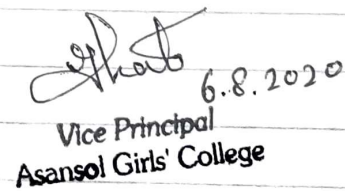 6.8.2020
Vice Principal
Asansol Girls' College